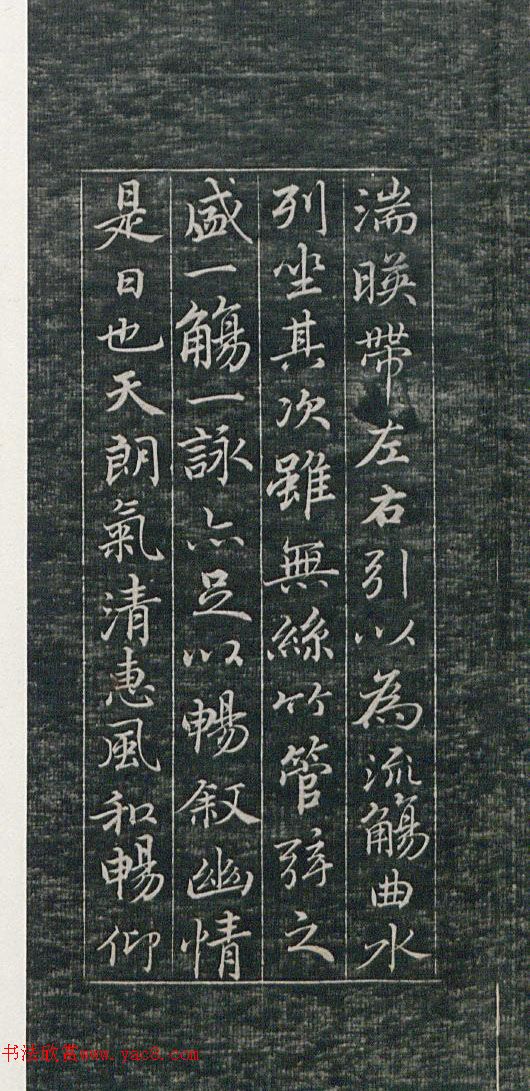 湍暎帶左右引以為流觴曲水
列坐其次雖無絲竹管弦之
盛一觴一詠亦足以暢敘幽情
是日也天朗氣清惠風和暢仰
书法欣赏www.yac8.com